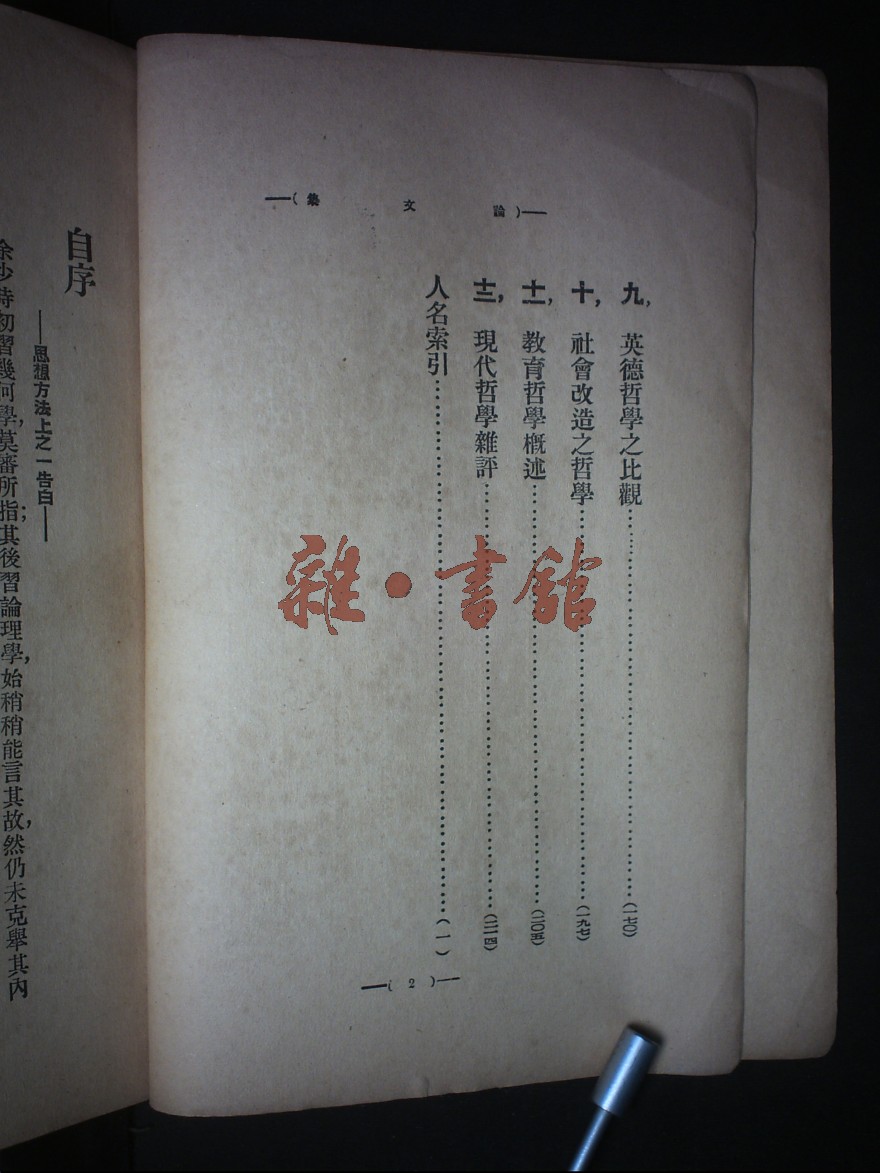 論文集
九，英德哲學之比觀……(一七〇)
十，社會改造之哲學……(一九七)
十一，教育哲學概述……(二〇五)
十二，現代哲學雜評……(二一四)
人名索引……(一)
(2)
自序
——思想方法上之一告白——
余少時初習幾何學，莫審所指；其後習論理學，始稍稍能言其故，然仍未克舉其內
雜·書館